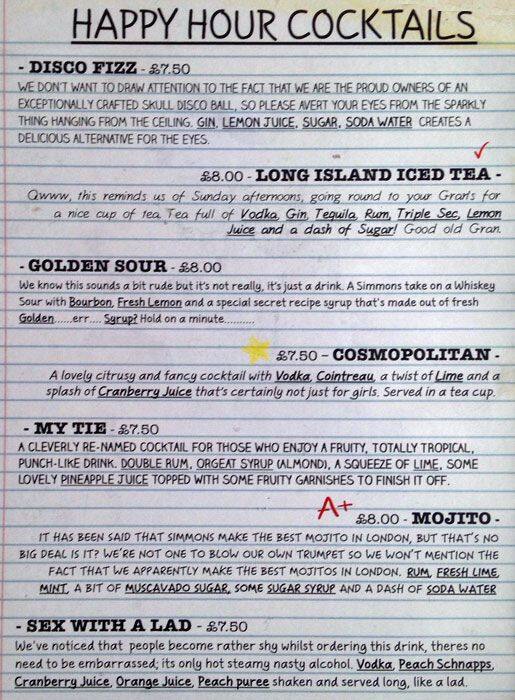 HAPPY HOUR COCKTAILS
- DISCO FIZZ - £7.50
WE DON'T WANT TO DRAW ATTENTION TO THE FACT THAT WE ARE THE PROUD OWNERS OF AN
EXCEPTIONALLY CRAFTED SKULL DISCO BALL, SO PLEASE AVERT YOUR EYES FROM THE SPARKLY
THING HANGING FROM THE CEILING. GIN, LEMON JUICE, SUGAR, SODA WATER CREATES A
DELICIOUS ALTERNATIVE FOR THE EYES.
£8.00 - LONG ISLAND ICED TEA -
Owww, this reminds us of Sunday afternoons, going round to your Gran's for
a nice cup of tea. Tea full of Vodka, Gin, Tequila, Rum, Triple Sec, Lemon
Juice and a dash of Sugar! Good old Gran.
- GOLDEN SOUR - £8.00
We know this sounds a bit rude but it's not really, it's just a drink. A Simmons take on a Whiskey
Sour with Bourbon, Fresh Lemon and a special secret recipe syrup that's made out of fresh
Golden......err.... Syrup? Hold on a minute..........
£7.50 - COSMOPOLITAN -
A lovely citrusy and fancy cocktail with Vodka, Cointreau, a twist of Lime and a
splash of Cranberry Juice that's certainly not just for girls. Served in a tea cup.
- MY TIE - £7.50
A CLEVERLY RE-NAMED COCKTAIL FOR THOSE WHO ENJOY A FRUITY, TOTALLY TROPICAL,
PUNCH-LIKE DRINK. DOUBLE RUM, ORGEAT SYRUP (ALMOND), A SQUEEZE OF LIME, SOME
LOVELY PINEAPPLE JUICE TOPPED WITH SOME FRUITY GARNISHES TO FINISH IT OFF.
A+
£8.00 - MOJITO -
IT HAS BEEN SAID THAT SIMMONS MAKE THE BEST MOJITO IN LONDON, BUT THAT'S NO
BIG DEAL IS IT? WE'RE NOT ONE TO BLOW OUR OWN TRUMPET SO WE WON'T MENTION THE
FACT THAT WE APPARENTLY MAKE THE BEST MOJITOS IN LONDON. RUM, FRESH LIME,
MINT, A BIT OF MUSCAVADO SUGAR, SOME SUGAR SYRUP AND A DASH OF SODA WATER
- SEX WITH A LAD - £7.50
We've noticed that people become rather shy whilst ordering this drink, theres no
need to be embarrassed; its only hot steamy nasty alcohol. Vodka, Peach Schnapps,
Cranberry Juice, Orange Juice, Peach puree shaken and served long, like a lad.